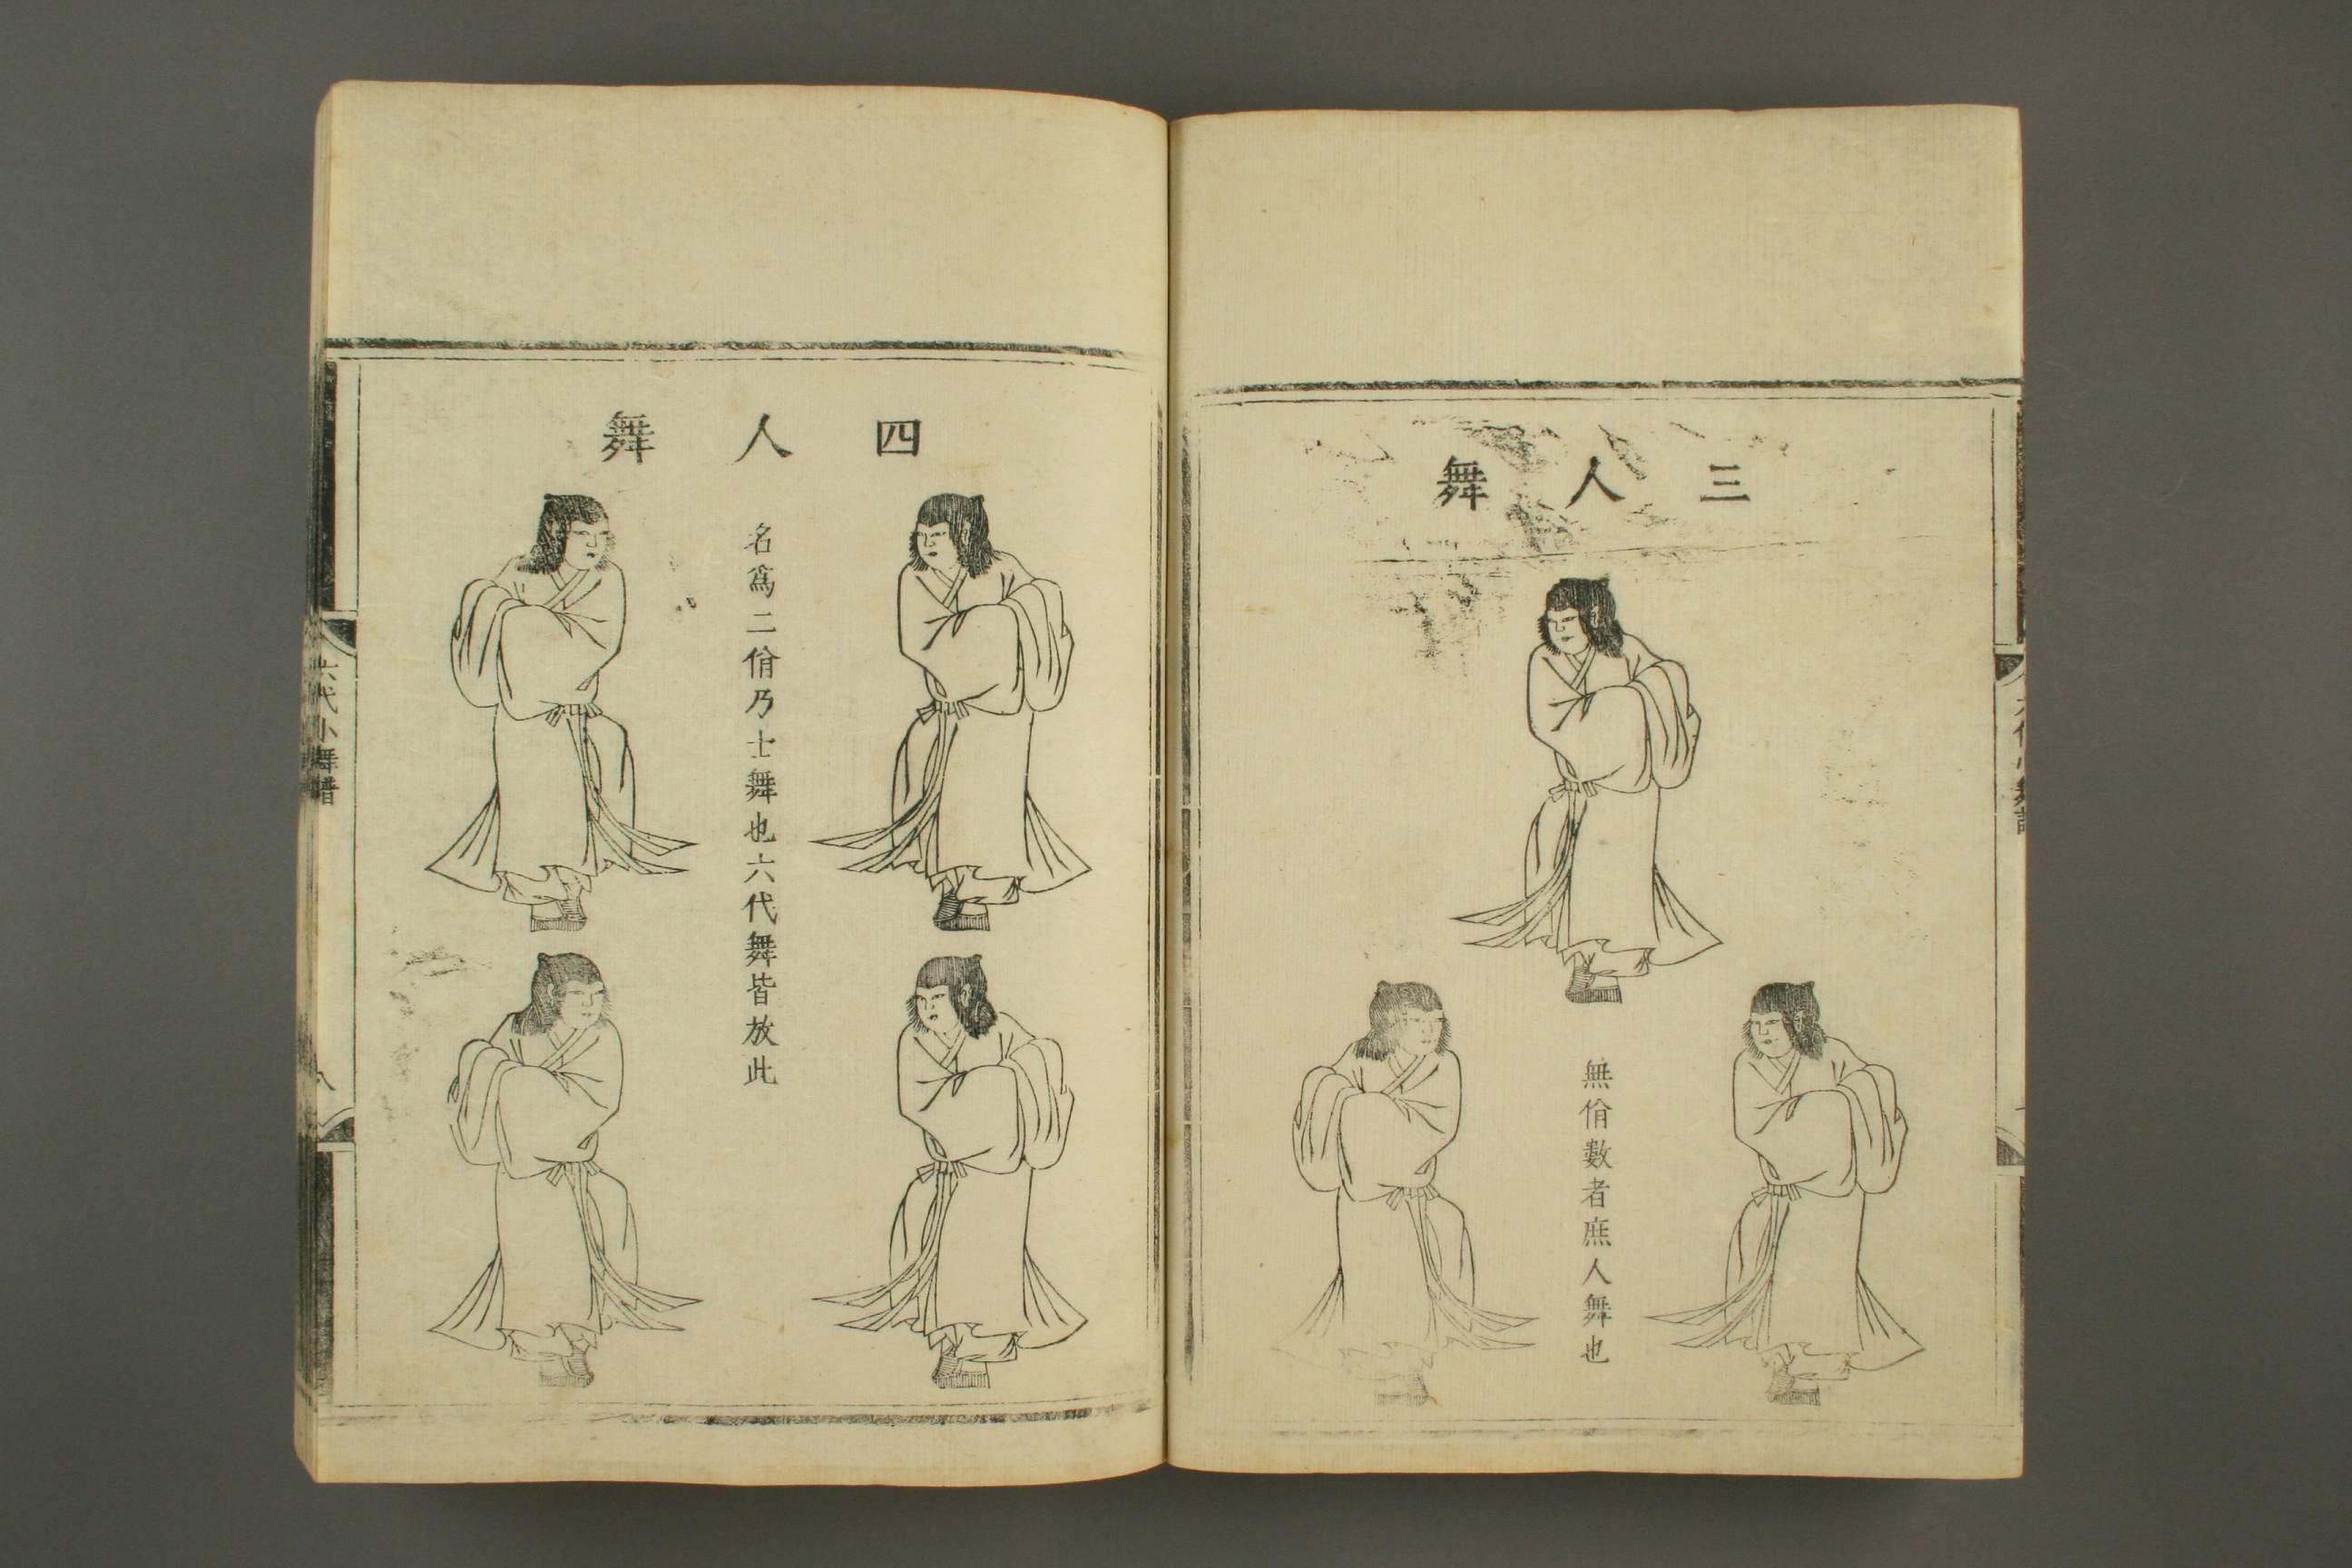 三人舞
無佾數者庶人舞也
四人舞
名爲二佾乃士舞也六代舞皆放此
六代小舞譜
八